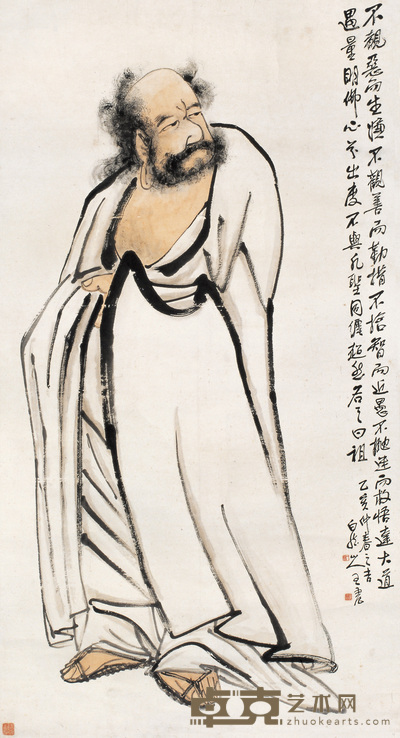 不覩惡而生嫌不觀善而勤措不捨智而近愚不拋迷而就悟達大道
過量明佛心兮出度不與凡聖同躔超然名之曰祖
乙亥仲春之吉
白龍山人王震
卓克艺术网
zhuokearts.com